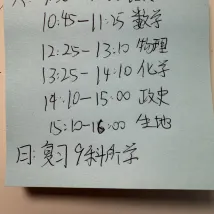 10:45-11:25 数学
12:25-13:10 物理
13:25-14:10 化学
14:10-15:00 政史
15:10-16:00 生地
日:复习9科所学